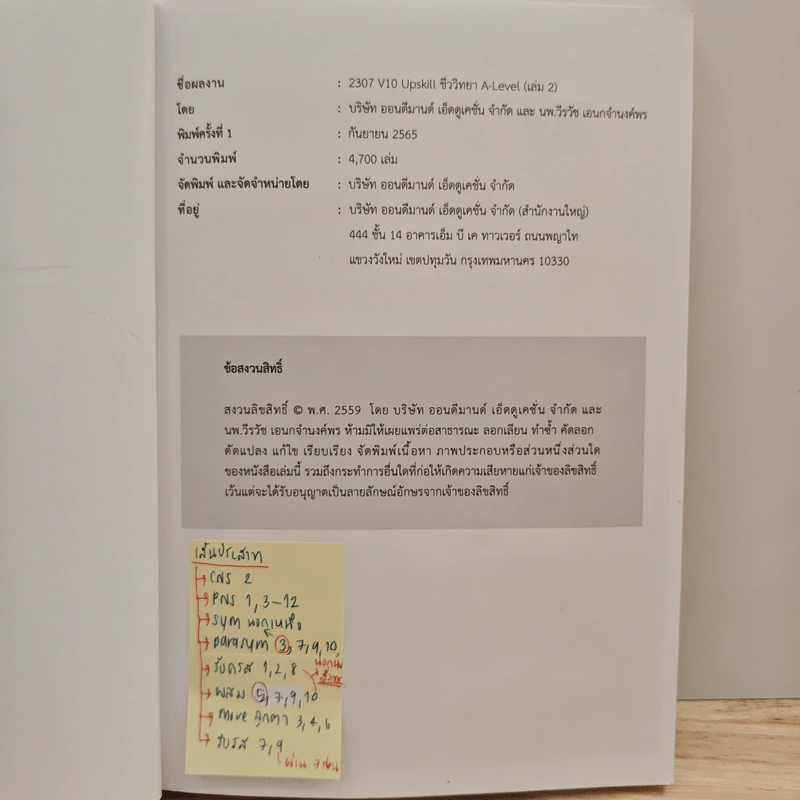 ชื่อผลงาน : 2307 V10 Upskill ชีววิทยา A-Level (เล่ม 2)
โดย : บริษัท ออนดีมานด์ เอ็ดดูเคชั่น จำกัด และ นพ.วีรวัช เอนกจำนงค์พร
พิมพ์ครั้งที่ 1 : กันยายน 2565
จำนวนพิมพ์ : 4,700 เล่ม
จัดพิมพ์ และจัดจำหน่ายโดย : บริษัท ออนดีมานด์ เอ็ดดูเคชั่น จำกัด
ที่อยู่ : บริษัท ออนดีมานด์ เอ็ดดูเคชั่น จำกัด (สำนักงานใหญ่)
444 ชั้น 14 อาคารเอ็ม บี เค ทาวเวอร์ ถนนพญาไท
แขวงวังใหม่ เขตปทุมวัน กรุงเทพมหานคร 10330
ข้อสงวนสิทธิ์
สงวนลิขสิทธิ์ © พ.ศ. 2559 โดย บริษัท ออนดีมานด์ เอ็ดดูเคชั่น จำกัด และ
นพ.วีรวัช เอนกจำนงค์พร ห้ามมิให้เผยแพร่ต่อสาธารณะ ลอกเลียน ทำซ้ำ คัดลอก
ดัดแปลง แก้ไข เรียบเรียง จัดพิมพ์เนื้อหา ภาพประกอบหรือส่วนหนึ่งส่วนใด
ของหนังสือเล่มนี้ รวมถึงกระทำการอื่นใดที่ก่อให้เกิดความเสียหายแก่เจ้าของลิขสิทธิ์
เว้นแต่จะได้รับอนุญาตเป็นลายลักษณ์อักษรจากเจ้าของลิขสิทธิ์
เส้นประสาท
CNS 2
PNS 1, 3-12
sym นอกเหนือ
parasym 3, 7, 9, 10
1, 2, 8
ผสม 5, 7, 9, 10
move ลูกตา 3, 4, 6
รับรส 7, 9